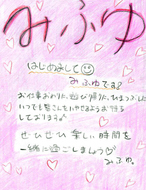 みふゆ
はじめまして☺
みふゆです♪
お仕事おわり、遊び帰り、ひまつぶし
いつでも皆さんをいやせるようお待ち
しております♡
ぜひぜひ楽しい時間を
一緒に過ごしましょう♡
みふゆ